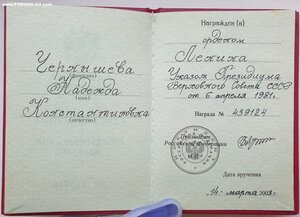 Чернышева
(фамилия)
Надежда
(имя)
Константиновна
(отчество)
Награжден (а)
орденом
Ленина
Указом Президиума
Верховного Совета СССР
от 6 апреля 1981г.
Награда № 439124
Президент
Российской Федерации
М.П.
Дата вручения
14 марта 2003 г.